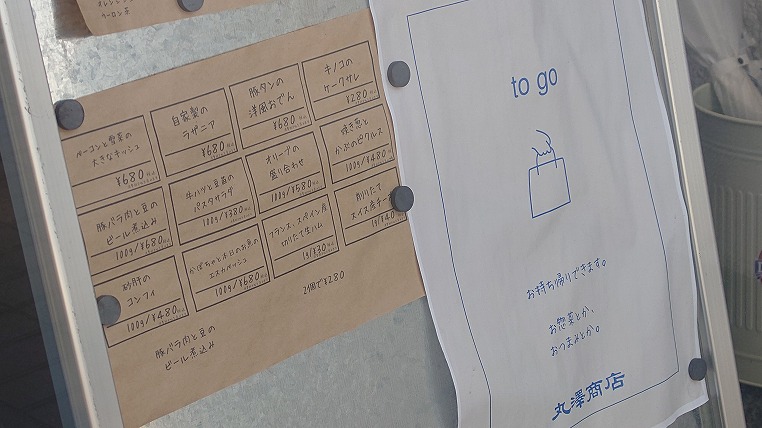 ウーロン茶
ベーコンと雪菜の
大きなキッシュ
¥680
自家製の
ラザニア
¥680
豚タンの
洋風おでん
¥680
キノコの
ケークサレ
¥280
豚バラ肉と豆の
ビール煮込み
100g/¥680
牛ハツと豆苗の
パスタサラダ
100g/¥380
オリーブの
盛り合わせ
100g/¥580
焼き葱と
かぶのピクルス
100g/¥480
砂肝の
コンフィ
100g/¥480
かぼちゃと木日のお魚の
エスカベッシュ
100g/¥680
フランス、スペイン産
切りたて生ハム
1g/¥30
削りたて
スイス産チーズ
1g/¥40
2個で¥280
豚バラ肉と豆の
ビール煮込み
to go
お持ち帰りできます。
お惣菜とか、
おつまみとか。
丸澤商店